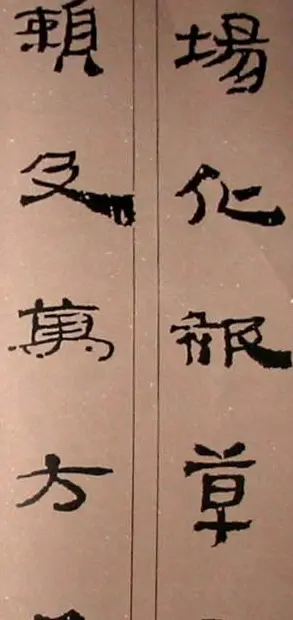 場化被草
賴及萬方